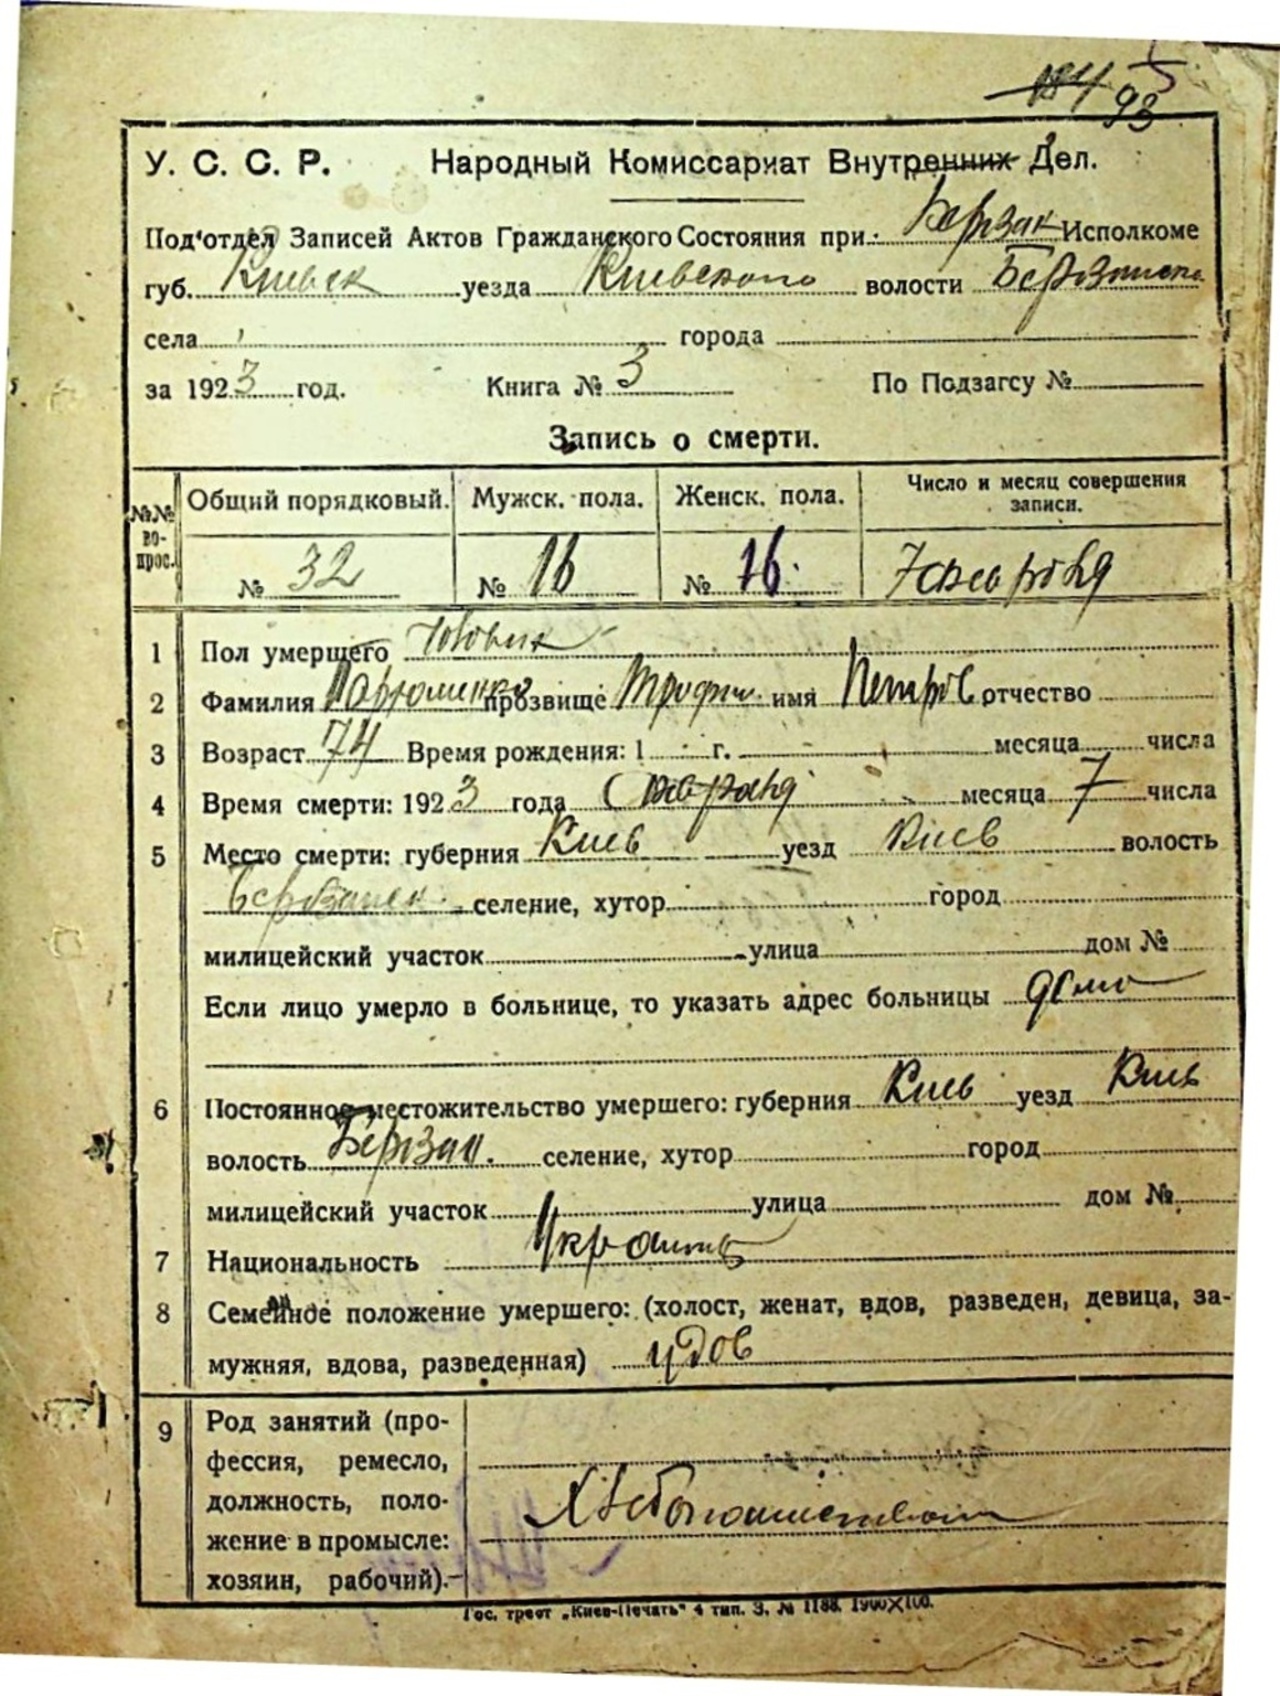 93
У. С. С. Р. Народный Комиссариат Внутренних Дел.
Под'отдел Записей Актов Гражданского Состояния при Исполкоме
губ. Киевск уезда Киевского волости
села города
за 1923 год. Книга № 3 По Подзагсу №
Запись о смерти.
№№ вопрос. Общий порядковый. Мужск. пола. Женск. пола. Число и месяц совершения записи.
№ 32 № 16 № 16.
1 Пол умершего
2 Фамилия прозвище Трофим имя Петров отчество
3 Возраст 74 Время рождения: 1 г. месяца числа
4 Время смерти: 1923 года месяца 7 числа
5 Место смерти: губерния Киев уезд Киев волость
селение, хутор город
милицейский участок улица дом №
Если лицо умерло в больнице, то указать адрес больницы дома
6 Постоянное местожительство умершего: губерния Киев уезд Киев
волость Берзан. селение, хутор город
милицейский участок улица дом №
7 Национальность
8 Семейное положение умершего: (холост, женат, вдов, разведен, девица, за-
мужняя, вдова, разведенная) удов
9 Род занятий (про-
фессия, ремесло,
должность, поло-
жение в промысле:
хозяин, рабочий).
Гос. трест „Киев-Печать" 4 тип. З. № 1188. 1900X100.